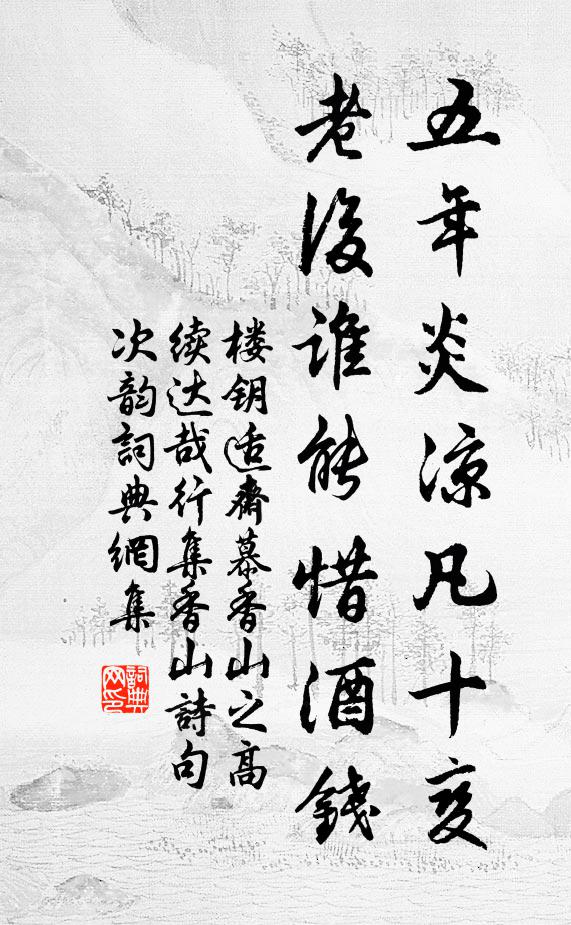 五年炎凉凡十变
老後谁能惜酒錢
楼钥适齋慕香山之高
续达哉行集香山詩句
次韵詞典網集
詞典網印